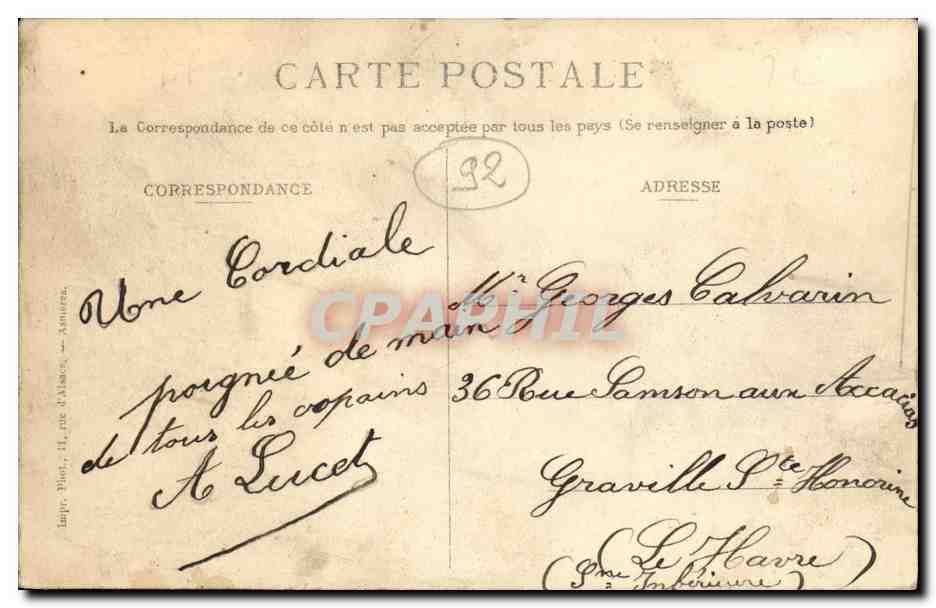 CARTE POSTALE
La Correspondance de ce côté n'est pas acceptée par tous les pays (Se renseigner à la poste)
92
CORRESPONDANCE
Une Cordiale
poignée de main
de tous les copains
A Lucet
ADRESSE
Mr Georges Calvarin
36 Rue Samson aux Accacias
Graville Ste Honorine
(Le Havre)
(Sne Inférieure)
Impr. Phot., 11, rue d'Alsace, — Asnières.
CPAPHIL